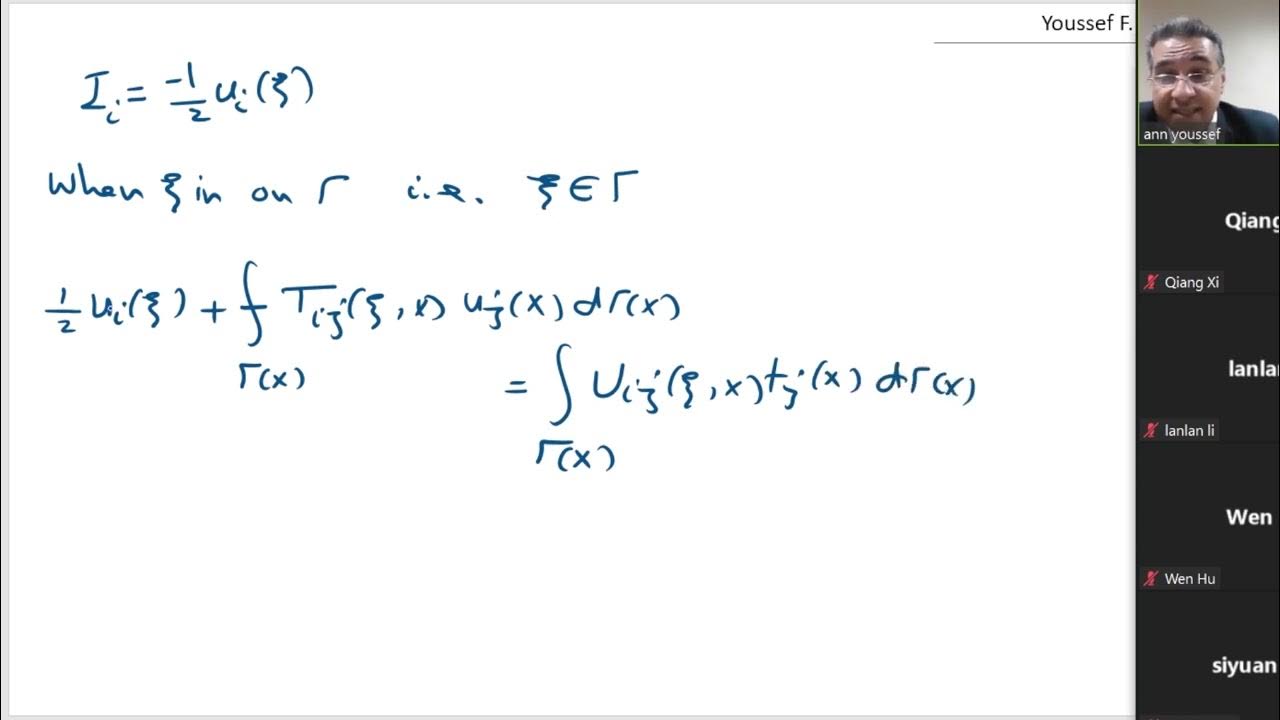 Youssef F.
I_i = -1/2 u_i(ξ)
When ξ in on Γ i.e. ξ ∈ Γ
1/2 u_i(ξ) + ⨍_Γ(x) T_ij(ξ, x) u_j(x) dΓ(x)
= ∫_Γ(x) U_ij(ξ, x) t_j(x) dΓ(x)
ann youssef
Qiang
Qiang Xi
lanla
lanlan li
Wen
Wen Hu
siyuan